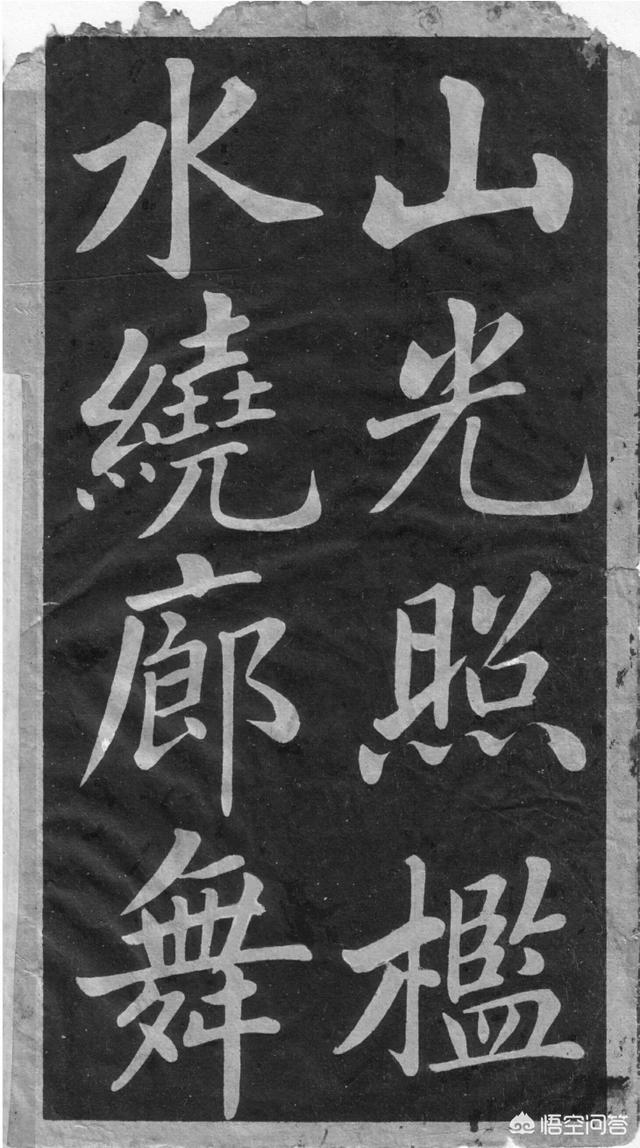 山光照檻
水繞廊舞
悟空问答